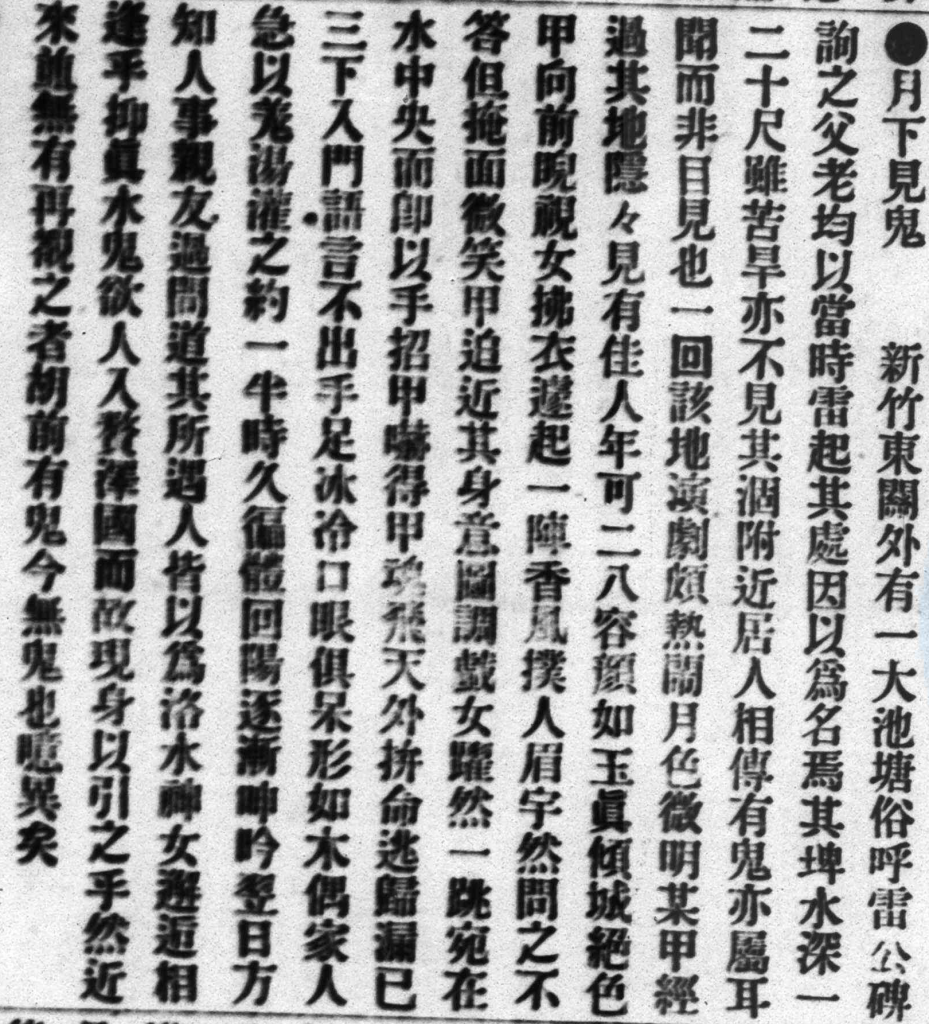 ●月下見鬼　新竹東關外有一大池塘俗呼雷公碑
詢之父老均以當時雷起其處因以爲名焉其埤水深一
二十尺雖苦旱亦不見其涸附近居人相傳有鬼亦屬耳
聞而非目見也一回該地演劇頗熱鬧月色微明某甲經
過其地隱々見有佳人年可二八容顏如玉眞傾城絕色
甲向前睨視女拂衣遽起一陣香風撲人眉宇然問之不
答但掩面微笑甲迫近其身意圖調戲女躍然一跳宛在
水中央而卽以手招甲嚇得甲魂飛天外拚命逃歸漏已
三下入門語言不出手足冰冷口眼俱呆形如木偶家人
急以羌湯灌之約一半時久徧體回陽逐漸呻吟翌日方
知人事親友過問道其所遇人皆以爲洛水神女邂逅相
逢乎抑眞水鬼欲人入贅澤國而故現身以引之乎然近
來絶無有再覩之者胡前有鬼今無鬼也噫異矣